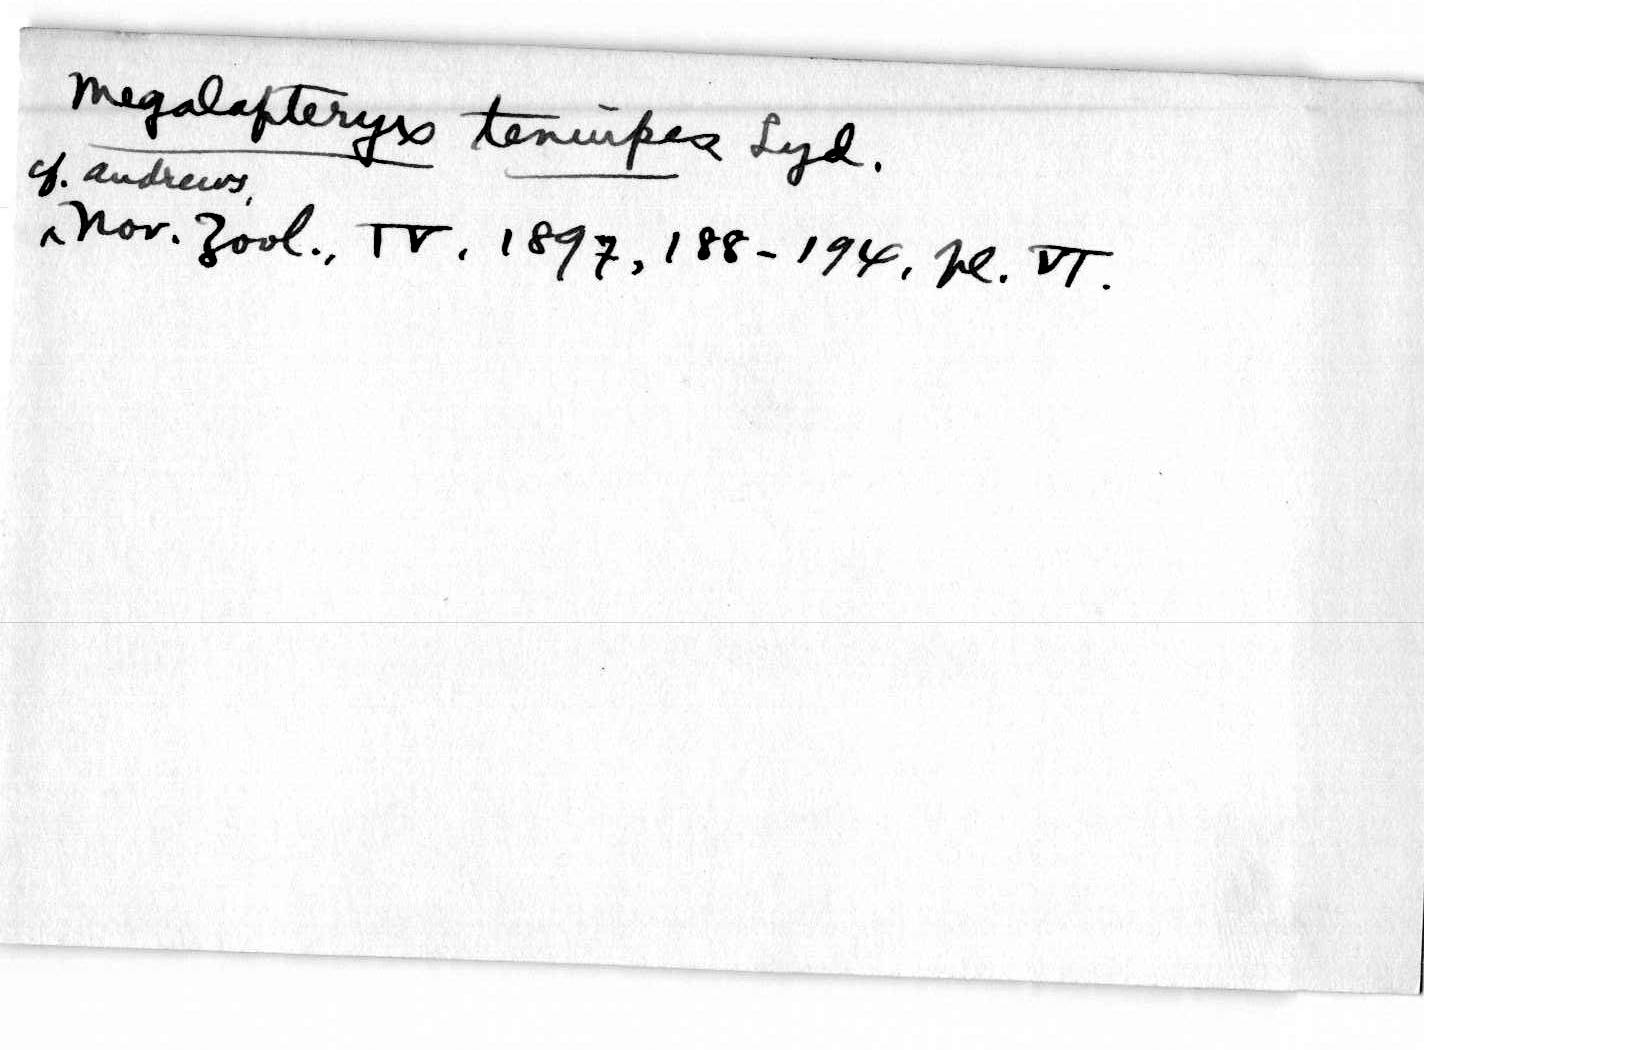 Megalapteryx tenuipes Lyd.
cf. Andrews,
^ Nov. Zool., IV, 1897, 188-194, pl. VI.